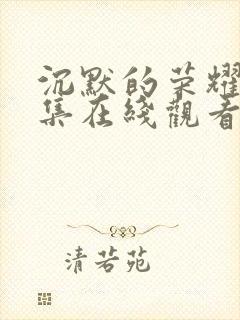 沉默的荣耀
集在綫觀看
清若苑